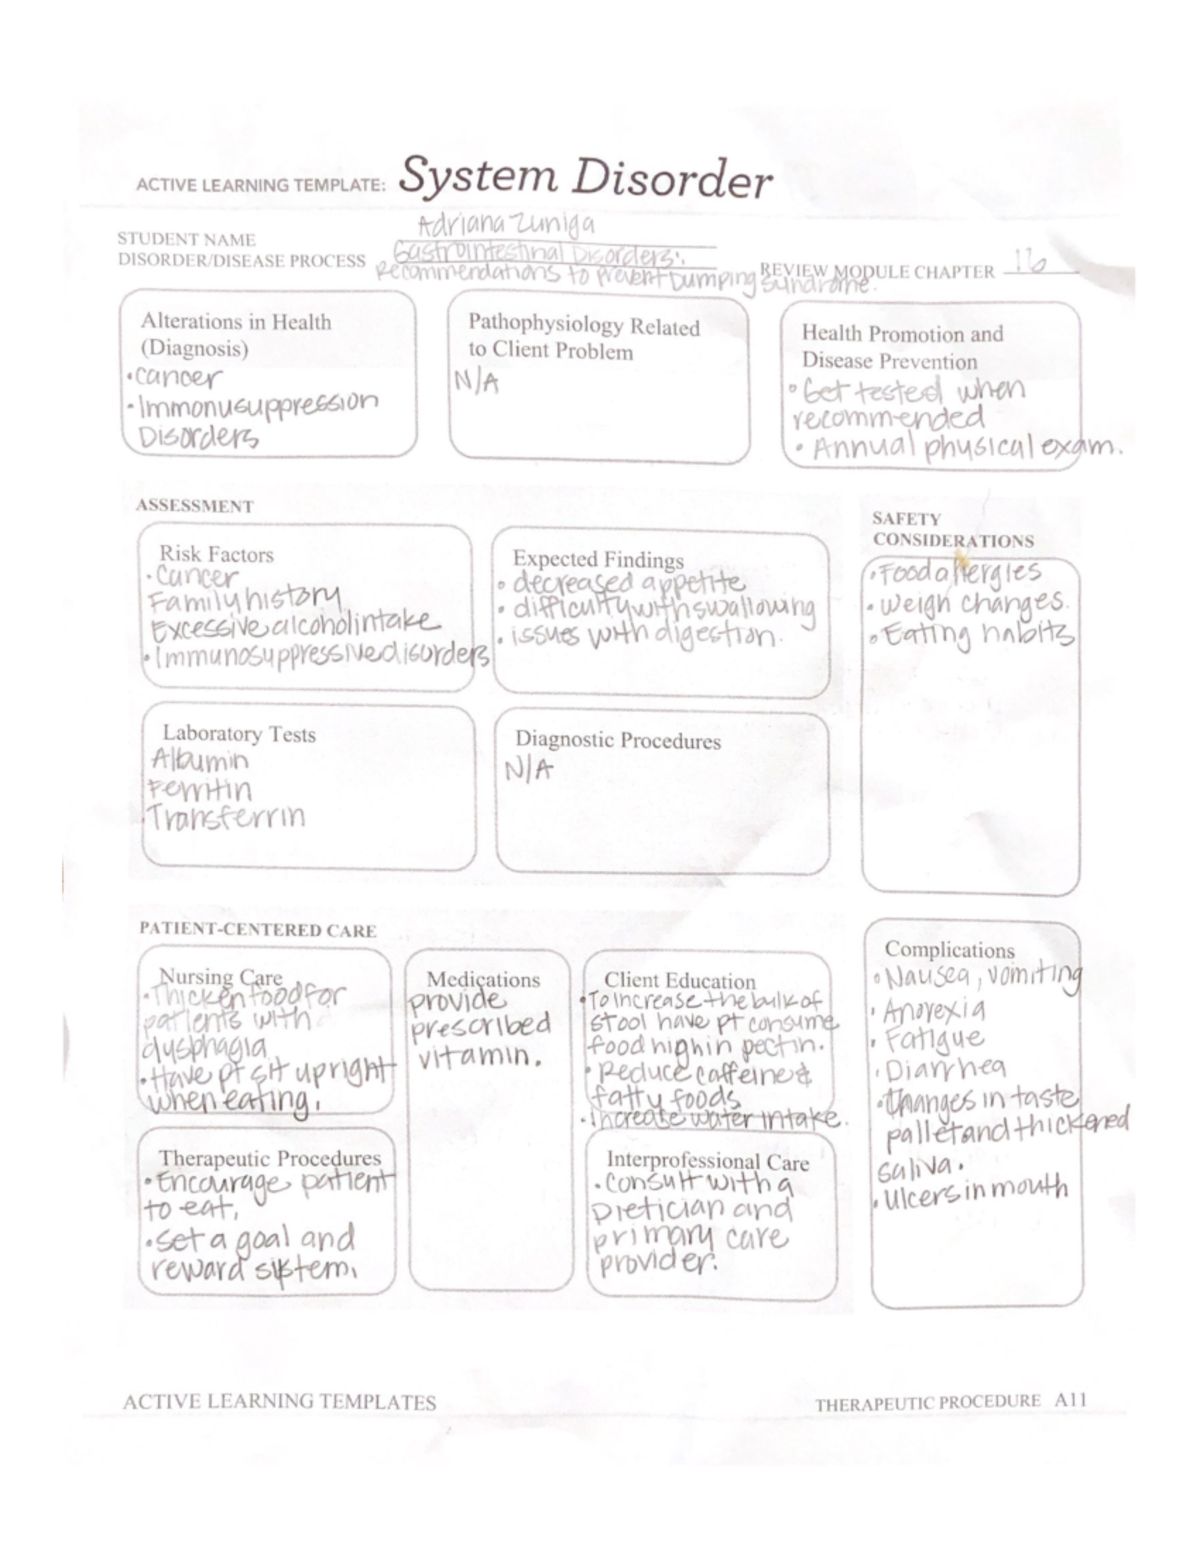 ACTIVE LEARNING TEMPLATE: System Disorder
Adriana Zuniga
STUDENT NAME
Gastrointestinal Disorders:
DISORDER/DISEASE PROCESS
Recommendations to prevent Dumping Syndrome.
REVIEW MODULE CHAPTER 16
Alterations in Health
(Diagnosis)
•cancer
•Immonusuppression
Disorders
Pathophysiology Related
to Client Problem
N/A
Health Promotion and
Disease Prevention
• Get tested when
recommended
• Annual physical exam.
ASSESSMENT
Risk Factors
•Cancer
Family history
Excessive alcohol intake
•Immunosuppressive disorders
Expected Findings
• decreased appetite
• difficulty with swallowing
• issues with digestion.
SAFETY
CONSIDERATIONS
•Food allergies
•weigh changes.
•Eating habits
Laboratory Tests
Albumin
Ferritin
Transferrin
Diagnostic Procedures
N/A
PATIENT-CENTERED CARE
Nursing Care
•Thicken food for
patients with
dysphagia
•Have pt sit upright
when eating.
Medications
provide
prescribed
vitamin.
Client Education
•To increase the bulk of
stool have pt consume
food high in pectin.
•Reduce caffeine &
fatty foods
•increate water intake.
Complications
•Nausea, vomiting
•Anorexia
•Fatigue
•Diarrhea
•Changes in taste
pallet and thickened
saliva.
•Ulcers in mouth
Therapeutic Procedures
•Encourage patient
to eat.
•set a goal and
reward system.
Interprofessional Care
•consult with a
Dietician and
primary care
provider.
ACTIVE LEARNING TEMPLATES
THERAPEUTIC PROCEDURE A11